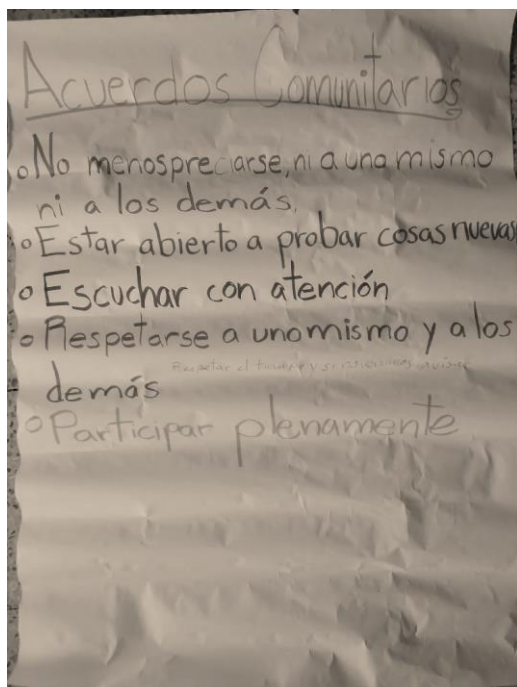 Acuerdos Comunitarios
No menospreciarse, ni a uno mismo
ni a los demás.
Estar abierto a probar cosas nuevas
Escuchar con atención
Respetarse a uno mismo y a los
Respetar el
demás
Participar plenamente